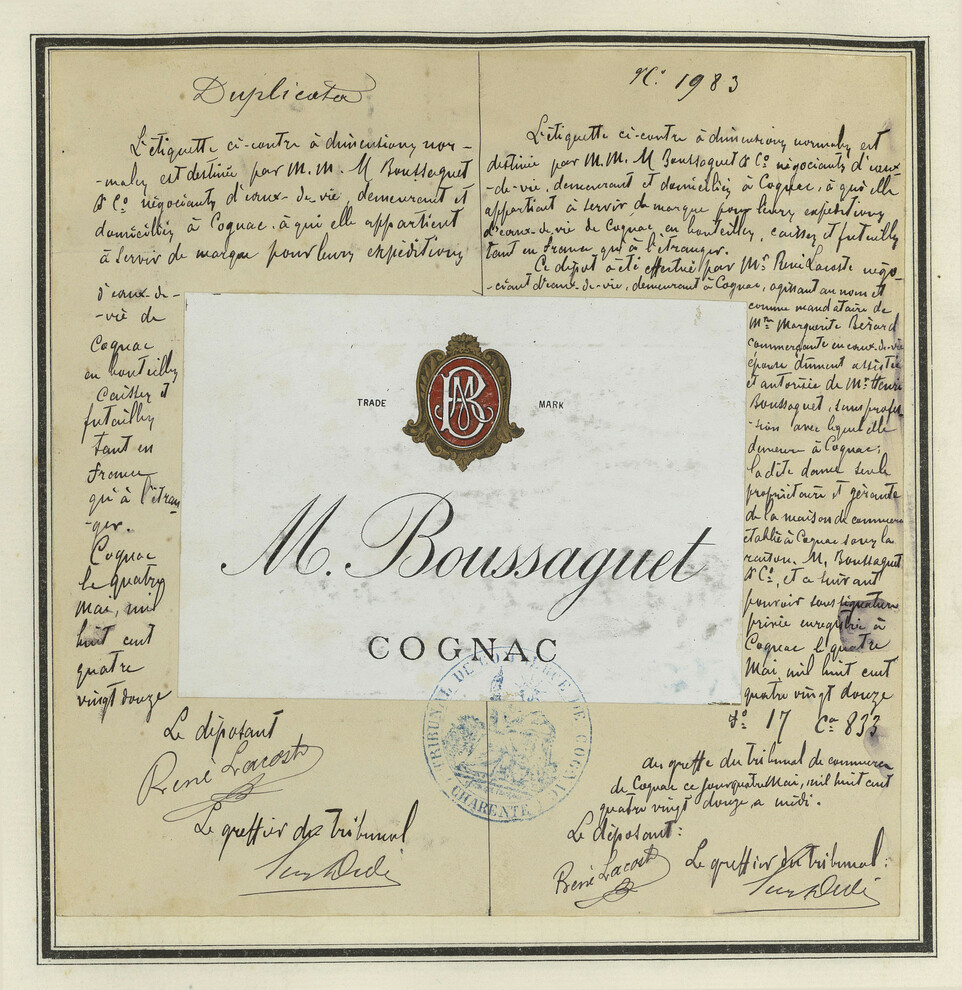 Duplicata
L'étiquette ci-contre à dimensions nor-
-males est destinée par M.M. M Boussaguet
& Co négociants d'eaux-de-vie, demeurant et
domiciliés à Cognac, à qui elle appartient
à servir de marque pour leurs expéditions
d'eaux-de-
-vie de
Cognac
en bouteilles
Caisses et
futailles
tant en
France
qu'à l'étran-
-ger.
Cognac
le quatre
Mai, mil
huit cent
quatre
vingt douze
Le déposant
René Lacoste
Le greffier du tribunal
No 1983
L'étiquette ci-contre à dimensions normales est
destinée par M.M. M Boussaguet & Co négociants d'eaux-
-de-vie, demeurant et domiciliés à Cognac, à qui elle
appartient à servir de marque pour leurs expéditions
d'eaux-de-vie de Cognac en bouteilles, caisses et futailles
tant en France qu'à l'étranger.
Ce dépôt a été effectué par Mr René Lacoste négo-
-ciant d'eaux-de-vie, demeurant à Cognac, agissant au nom et
comme mandataire de
Mme Marguerite Bérard
commerçante en eaux-de-vie
épouse dûment assistée
et autorisée de Mr Henri
Boussaguet, sans profes-
-sion avec lequel elle
demeure à Cognac;
la dite dame seule
propriétaire et gérante
de la maison de commerce
établie à Cognac sous la
raison M. Boussaguet
& Co, et ce suivant
pouvoir sous signature
privée enregistré à
Cognac le quatre
Mai mil huit cent
quatre vingt douze
Fo 17 Ce 833
au greffe du tribunal de commerce
de Cognac ce jour quatre Mai, mil huit cent
quatre vingt douze, à midi.
Le déposant:
René Lacoste
Le greffier du tribunal:
TRADE MARK
M. Boussaguet
COGNAC
TRIBUNAL DE COMMERCE DE COGNAC
CHARENTE